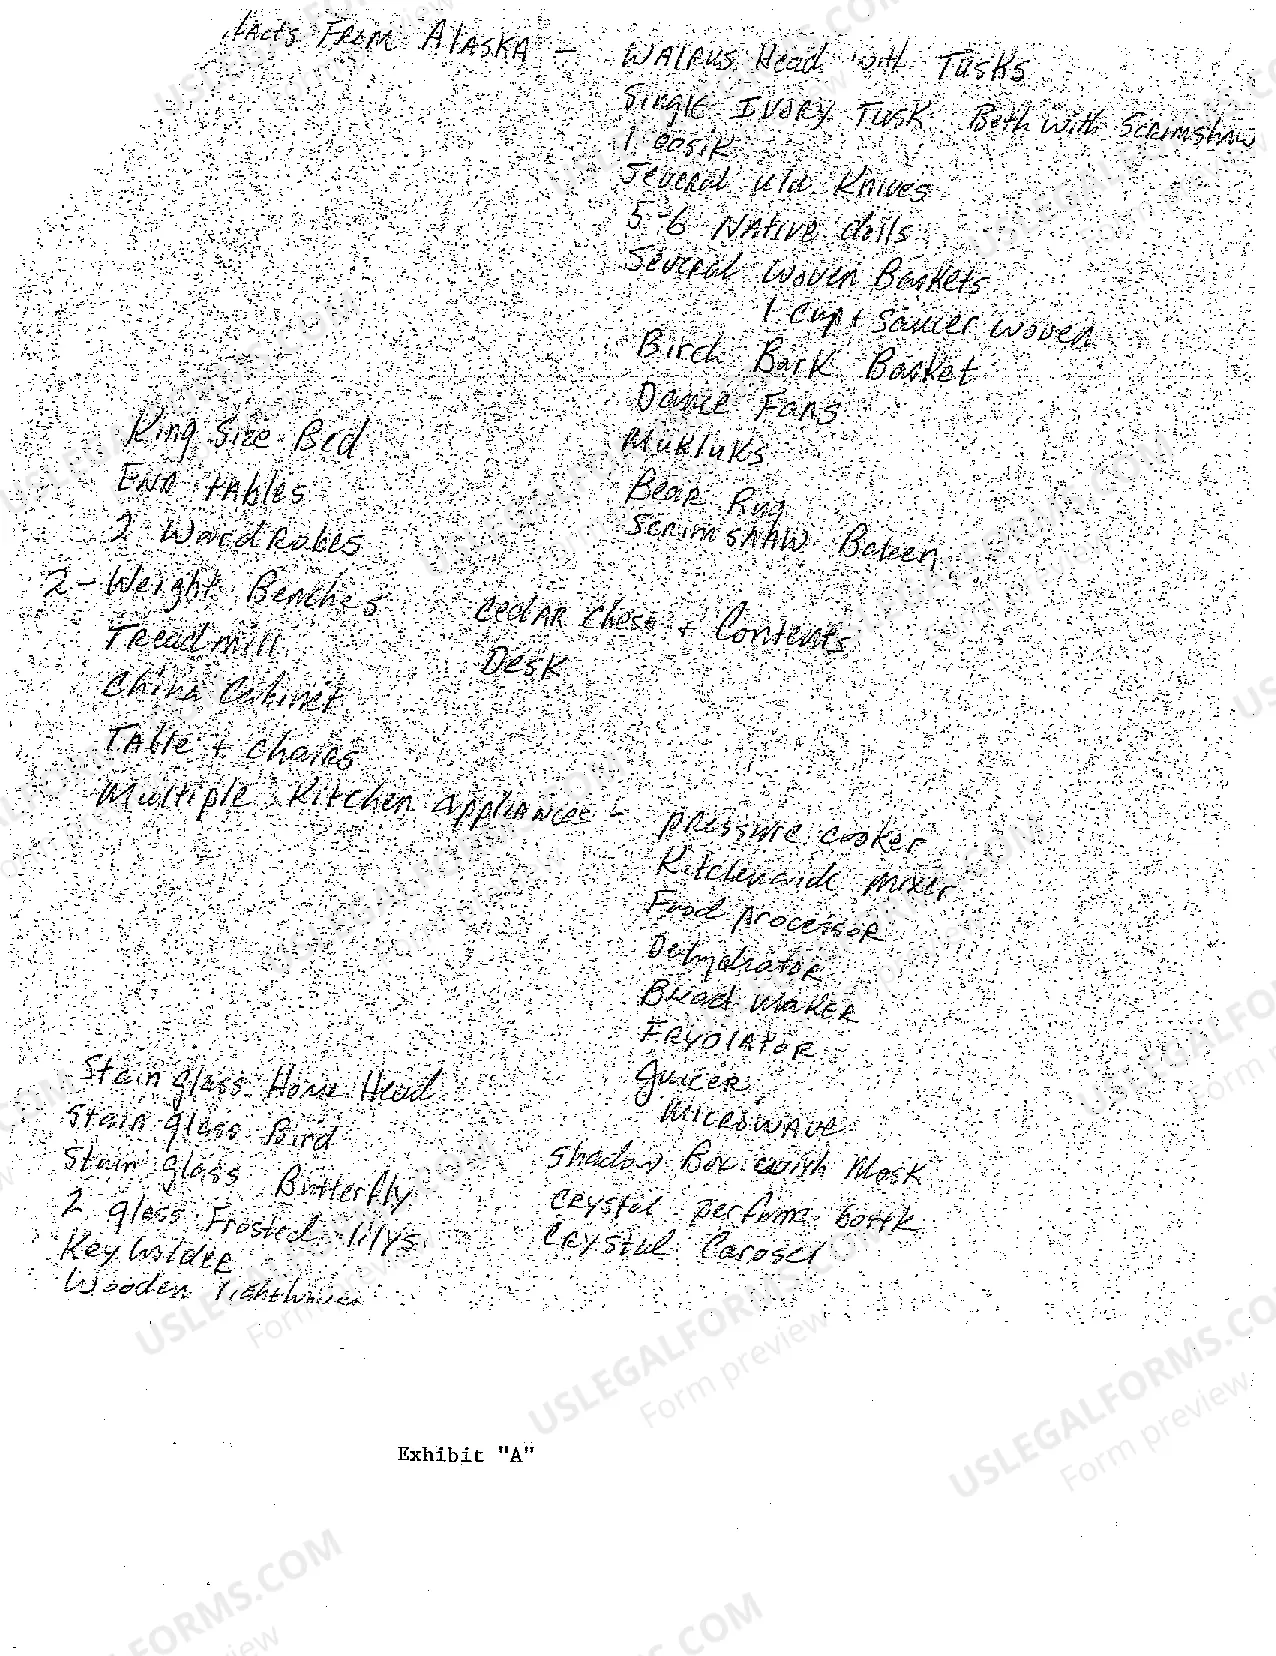 facts From Alaska -
Walrus Head with Tusks
Single Ivory Tusk Both with Scrimshaw
1 oosik
Several old Knives
5-6 Native dolls
Several Woven Baskets
1 Cup + Saucer woven
Birch Bark Basket
Dance Fans
Mukluks
Bear Rug
Scrimshaw Baleen
King Size Bed
End tables
2 Wardrobes
2 - Weight Benches
Treadmill
China Cabinet
Table + Chairs
Cedar Chest + Contents
Desk
Multiple Kitchen appliances -
pressure cooker
Kitchenaide mixer
Food processor
Dehydrator
Bread maker
Fryolator
Juicer
Microwave
Stain glass Head
Stain glass Bird
Stain glass Butterfly
2 glass Frosted lilys
Key holder
Wooden lighthouse
Shadow Box with Mask
Crystal perfume bottle
Crystal Carosel
Exhibit "A"
USLEGALFORMS.COM
Form preview